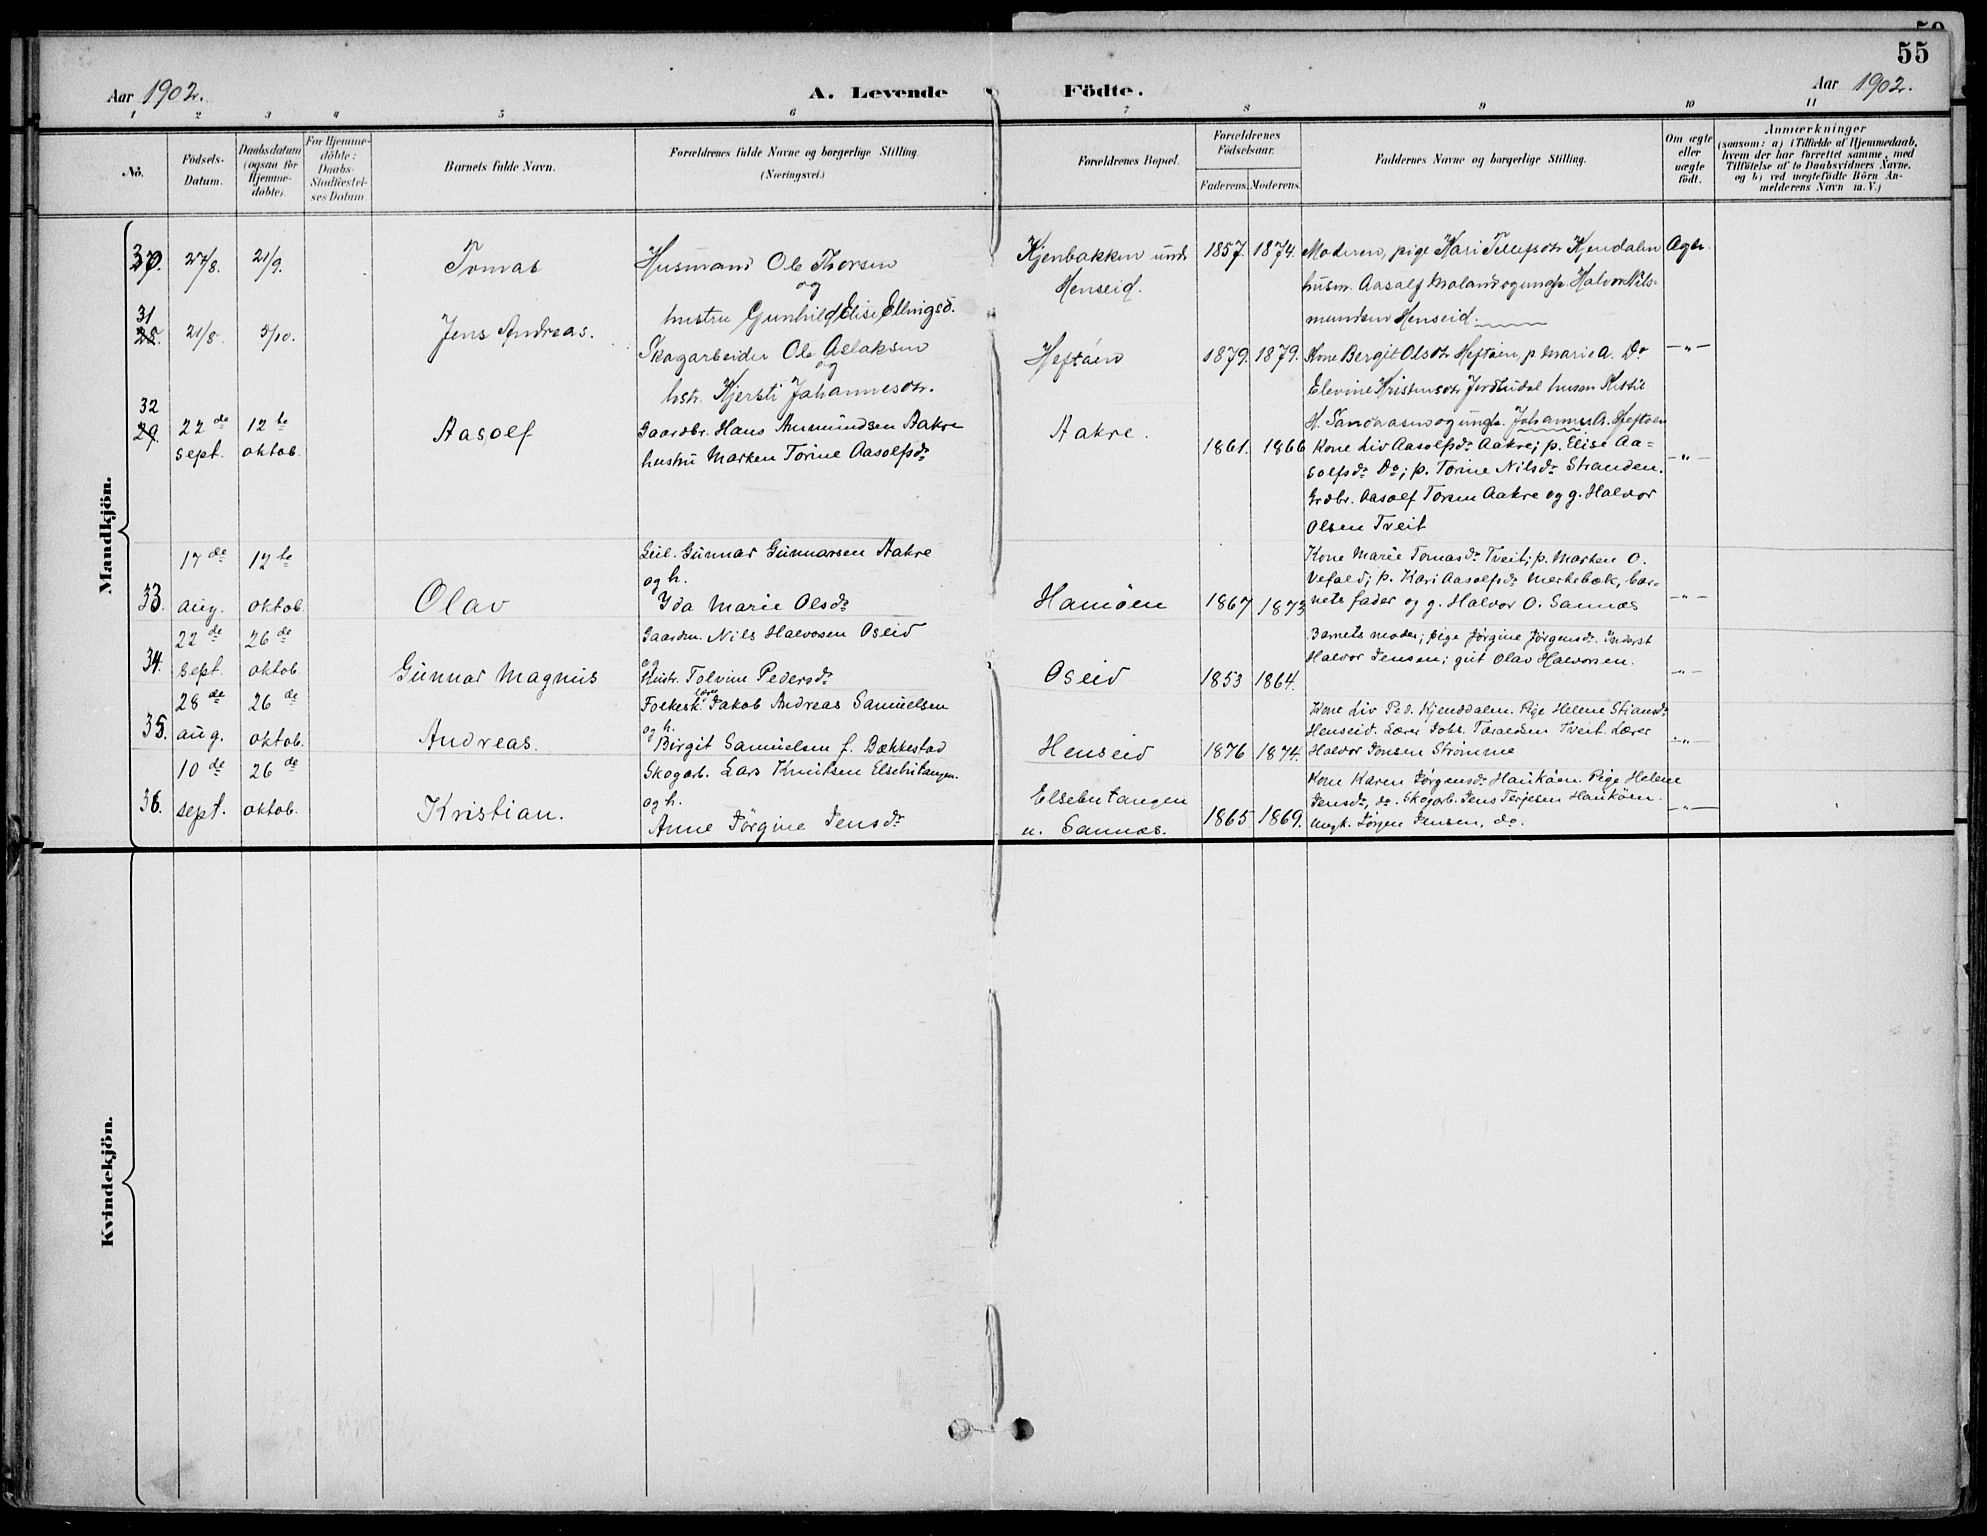 55
Aar 1902.
A. Levende Födte.
Aar 1902.
1 2 3 4 5 6 7 8 9 10 11
No.
Födsels-
Datum.
Daabsdatum
(ogsaa for
Hjemme-
döbte).
For Hjemme-
döbte:
Daabs-
Stadfæstel-
ses Datum
Barnets fulde Navn.
Forældrenes fulde Navne og borgerlige Stilling.
(Næringsvei.)
Forældrenes Bopæl.
Forældrenes
Födselsaar.
Faderens. Moderens.
Faddernes Navne og borgerlige Stilling.
Om ægte
eller
uægte
födt.
Anmærkninger
(saasom: a) i Tilfælde af Hjemmedaab,
hvem der har forrettet samme, med
Tilföielse af to Daabsvidners Navne,
og b) ved uægtefödte Börn An-
melderens Navn m. V.)
Mandkjön.
30. 27/8. 21/9. Tomas
Husmand Ole Thorsen
og
hustru Gunhild Elise Ellingsd.
Kjenbakken und
Henseid.
1857. 1874.
Moderen, pige Kari Tellefsdtr Kjendalen
husm. Aasolf Moland og ungk. Halvor Nils-
Henseid.
Ægte.
31
28. 21/8 5/10. Jens Andreas.
Skogarbeider Ole Aslaksen
og
hstr. Kjersti Johannesdtr.
Heftøen
1879. 1879.
Kone Bergit Olsdtr Heftøen, p. Marie A. Do
Elevine Kristensdtr
H. og ungk. Johannes A. Heftøen
—"—
32
29. 22de sept. 12te oktob. Aasolf
Gaardbr. Hans Aanundsen Aakre
hustru Marken Torine Aasolfsdr
Aakre.
1861. 1866
Kone Liv Aasolfsdr Aakre; p. Elise Aa-
solfsdr Do; p. Torine Nilsdr Stranden.
Grdbr. Aasolf Torsen Aakre og g. Halvor
Olsen Tveit
—"—
33. 17de aug. 12te oktob Olav
Gunnar Gunnarsen Aakre
og h.
Ida Marie Olsdr
Hamøen
1867 1873
Kone Marie Tomasdr Tveit; p. Marken O.
Vefald; p. Kari Aasolfsdr Merkebæk, bar-
nets fader og g. Halvor O. Sannæs
—"—
34. 22de sept. 26de oktob Gunnar Magnus
Gaardm. Nils Halvorsen Oseid
og
hustr. Tolvine Pedersdr
Oseid
1853 1864.
Barnets moder; pige Jørgine Jørgensdr. Inderst
Halvor Jensen; gut Olav Halvorsen.
—"—
35. 28de aug. 26de oktob. Andreas.
Folkesk.lærer Jakob Andreas Samuelsen
og h.
Birgit Samuelsen f. Bækkestad
Henseid
1876 1874.
Kone Liv Ped. Kjenddalen. Pige Helene Stiansdr
Henseid. Lærer Tveit. Lærer
Halvor Jonsen Strømme
—"—
36. 10de sept. 26de oktob. Kristian.
Skogarb. Lars Knutsen Elsebutangen.
og h.
Anne Jørgine Jensdr
Elsebutangen
u. Sannæs.
1865. 1869.
Kone Karen Jørgensdr Haukøen. Pige Helene
Jensdr, do. Skogarb. Jens Terjesen Haukøen.
Ungk. Jørgen Jensen, do.
—"—
Kvindekjön.